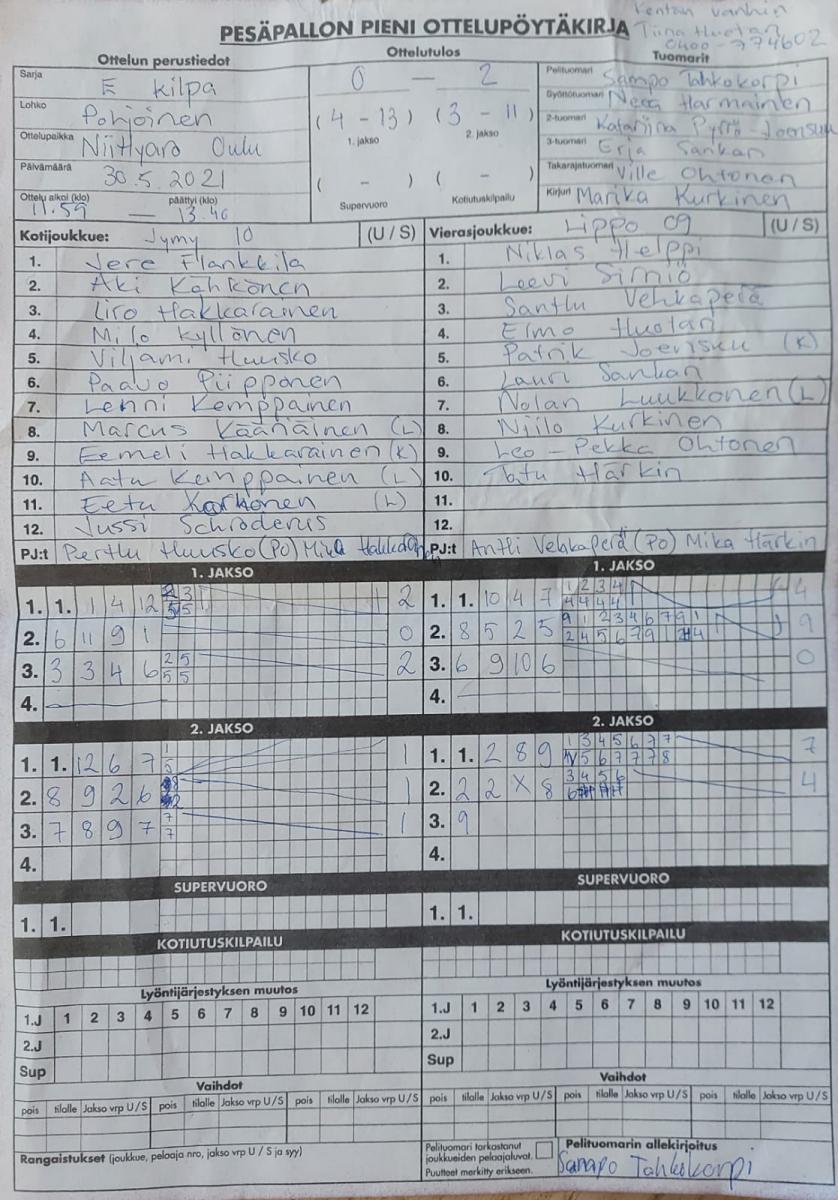 PESÄPALLON PIENI OTTELUPÖYTÄKIRJA
Kentän vanhin
Tiina Huotari
0400-774602
Ottelun perustiedot
Ottelutulos
Tuomarit
Sarja E kilpa
Lohko Pohjoinen
Ottelupaikka Niittyaro Oulu
Päivämäärä 30.5.2021
Ottelu alkoi (klo) päättyi (klo)
11.59 — 13.46
0 — 2
(4 - 13) (3 - 11)
1. jakso 2. jakso
( - ) ( - )
Supervuoro Kotiutuskilpailu
Pelituomari Sampo Tahkokorpi
Syöttötuomari Neea Harmainen
2-tuomari Katariina Pyrrö-Joensuu
3-tuomari Erja Sankan
Takarajatuomari Ville Ohtonen
Kirjuri Marika Kurkinen
Kotijoukkue: Jymy 10 (U / S)
1. Jere Flankkila
2. Aki Kähkönen
3. Iiro Hakkarainen
4. Milo Kyllönen
5. Viljami Huusko
6. Paavo Piipponen
7. Lenni Kemppainen
8. Marcus Kääriäinen (L)
9. Eemeli Hakkarainen (K)
10. Aatu Kemppainen (L)
11. Eetu Karhonen (L)
12. Jussi Schroderus
PJ:t Perttu Huusko (PO) Mika Hakkarainen
Vierasjoukkue: Lippo 09 (U / S)
1. Niklas Helppi
2. Leevi Sirniö
3. Santtu Vehkaperä
4. Elmo Huotari
5. Patrik Joensuu (K)
6. Lauri Sankan
7. Nolan Luukkonen (L)
8. Niilo Kurkinen
9. Leo-Pekka Ohtonen
10. Tatu Härkin
11.
12.
PJ:t Antti Vehkaperä (PO) Mika Härkin
1. JAKSO
1. 1. 1 4 12 2
2. 6 11 9 1 0
3. 3 3 4 6 2 5 2
5 5
4.
1. JAKSO
1. 1. 10 4 7 1 2 3 4 4
4 4 4 4
2. 8 5 2 5 9 1 2 3 4 6 7 9 1 9
2 4 5 6 7 9 1
3. 6 9 10 6 0
4.
2. JAKSO
1. 1. 12 6 7 1 1
5
2. 8 9 2 6 1
3. 7 8 9 7 7 1
7
4.
2. JAKSO
1. 1. 2 8 9 1 3 4 5 6 7 7 7
5 6 7 7 7 8
2. 2 2 X 8 3 4 5 6 4
3. 9
4.
SUPERVUORO
1. 1.
SUPERVUORO
1. 1.
KOTIUTUSKILPAILU
KOTIUTUSKILPAILU
Lyöntijärjestyksen muutos
1.J 1 2 3 4 5 6 7 8 9 10 11 12
2.J
Sup
Lyöntijärjestyksen muutos
1.J 1 2 3 4 5 6 7 8 9 10 11 12
2.J
Sup
Vaihdot
pois tilalle Jakso vrp U / S pois tilalle Jakso vrp U / S pois tilalle Jakso vrp U / S
Vaihdot
pois tilalle Jakso vrp U / S pois tilalle Jakso vrp U / S pois tilalle Jakso vrp U / S
Rangaistukset (joukkue, pelaaja nro, jakso vrp U / S ja syy)
Pelituomari tarkastanut
joukkueiden pelaajaluvat.
Puutteet merkitty erikseen.
Pelituomarin allekirjoitus
Sampo Tahkokorpi